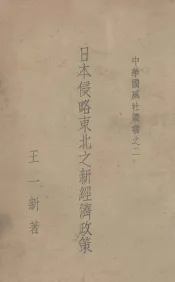 中華國風社叢書之二
日本侵略東北之新經濟政策
王一新著